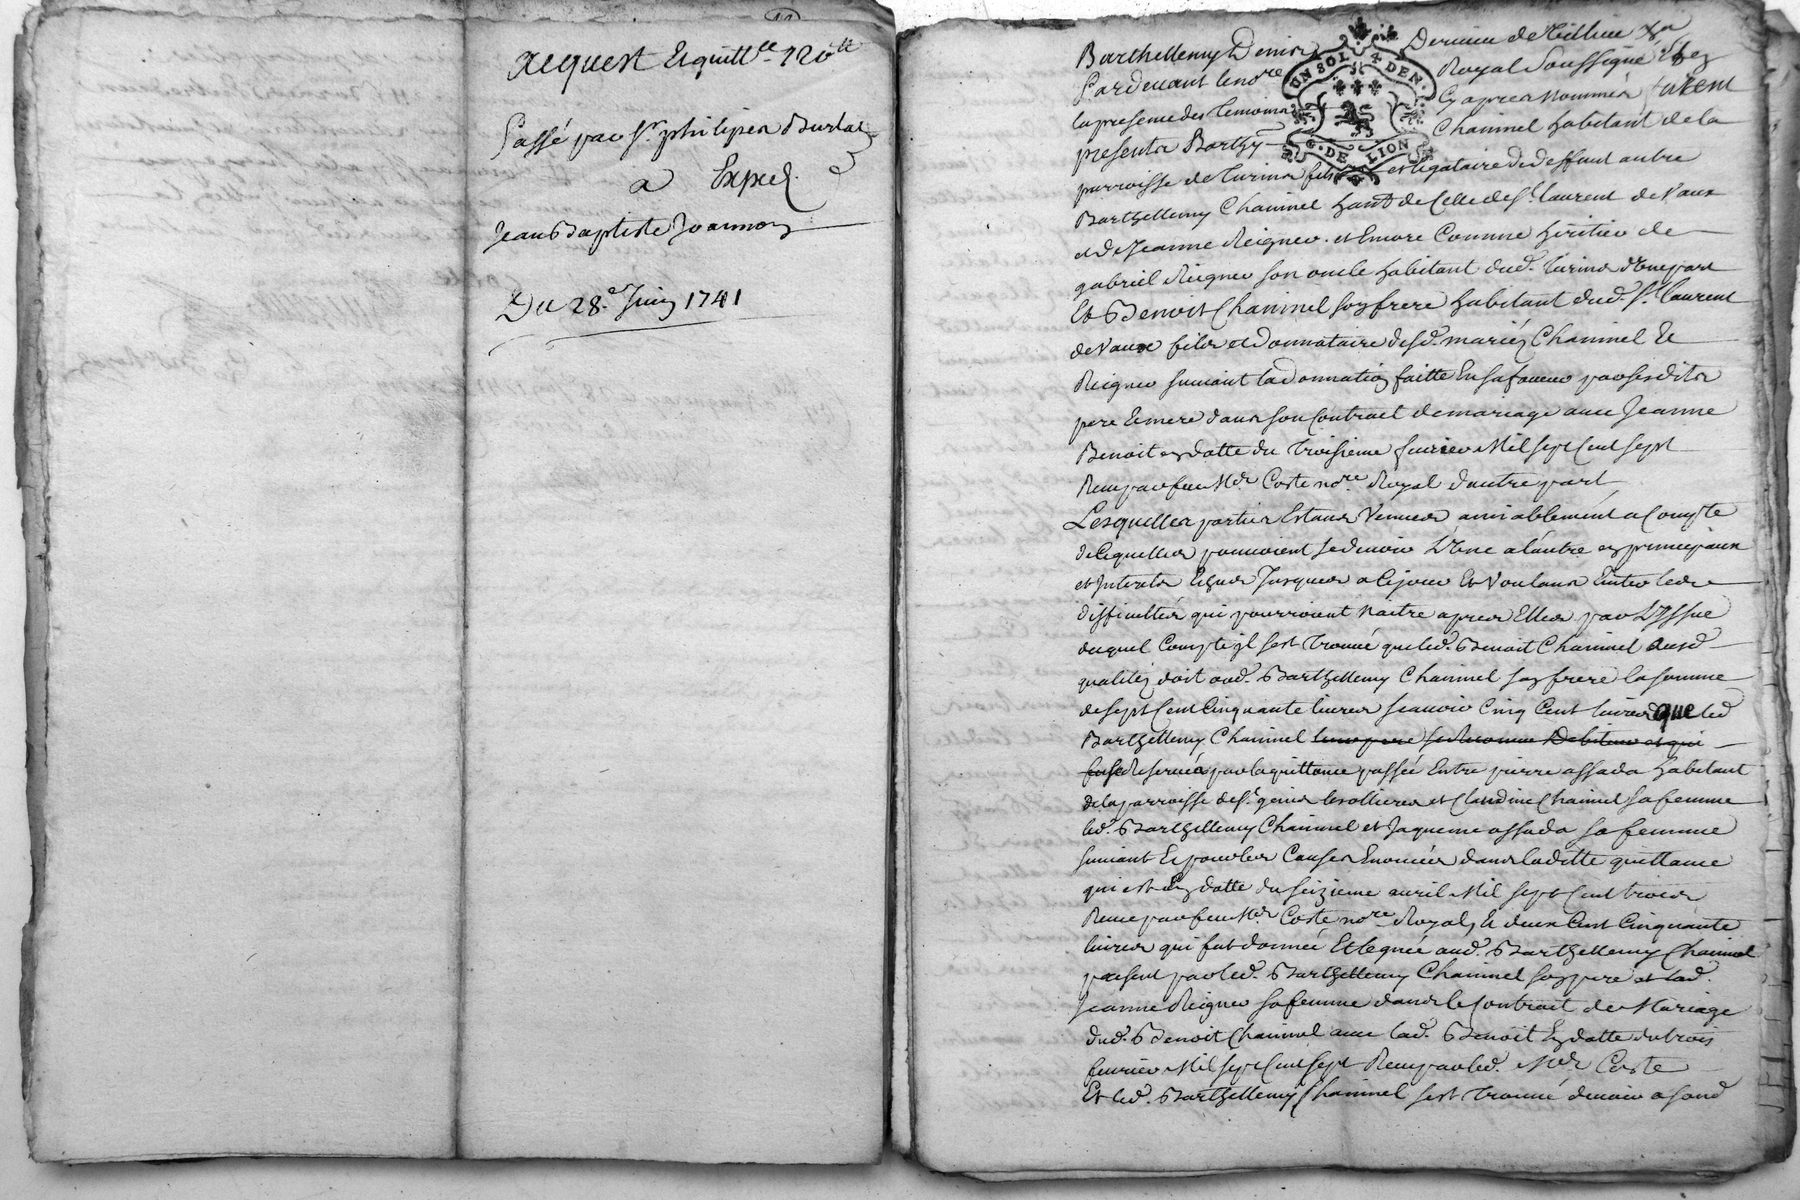 acquest Et quittce 120tt
Passé par Sr philipes Burlat
a Exped.
Jean Baptiste Joannon
Du 28.e Juin 1741
Barthellemy Denis
Pardevant le nore Royal Soussigné Et ez
la presence des Temoins Cy apres Nommés furent
presents Barthy Chaninel habitant de la
parroisse de Turins fils et legataire de deffunt autre
Barthellemy Chaninel hant de Celle de St. laurent de Vaux
et de Jeanne Reigner. et Encore Comme heritier de
gabriel Reigner son oncle habitant dud. Turins d'Une part
Et Benoit Chaninel son frere habitant dud. St. laurent
de Vaux fils et Donnataire desd. mariéz Chaninel Et
Reigner suivant la donnation faitte En sa faveur par sesdits
pere Et mere dans son Contract de mariage avec Jeanne
Benoit en datte du Troisieme fevrier Mil sept Cent sept
Receu par feu Me Coste nore Royal d'autre part
Lesquelles parties Estans Venues amiablement a Compte
de Ce quelles pouvoient se devoir L'Une a l'autre en principaux
et Interets Echus Jusques a Ce jour Et Voulans Eviter les
difficultés qui pourroient Naitre apres Elles par L'Issue
duquel Compte il s'est Trouvé que led. Benoit Chaninel ausd.
qualitéz doit aud. Barthellemy Chaninel son frere la somme
de sept Cent Cinquante livres scavoir Cinq Cent livres que led
Barthellemy Chaninel
Reservés par la quittance passée Entre pierre assada habitant
de la parroisse de St. genis les ollieres et Claudine Chaninel sa femme
led. Barthellemy Chaninel et Jaqueme assada sa femme
suivant Et pour les Causes Enoncées dans laditte quittance
qui est En datte du seizieme avril Mil sept Cent trois
Receue par feu Me Coste nore Royal, Et deux Cent Cinquante
livres qui fut donnée Et leguée aud. Barthellemy Chaninel
present par led. Barthellemy Chaninel son pere et lad.
Jeanne Reigner sa femme dans le Contract de Mariage
dud. Benoit Chaninel avec lad. Benoit En datte du trois
fevrier Mil sept Cent sept Receu par led. Me Coste
Et led. Barthellemy Chaninel s'est Trouvé devoir a sond
UN SOL 4 DEN.
G. DE LION